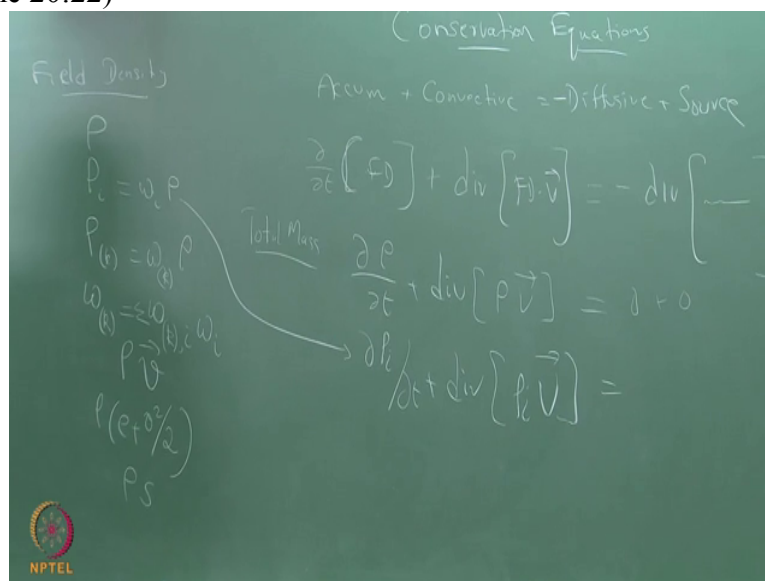 e 20:22)
Conservation Equations
Field Density
Accum + Convective = -Diffusive + Source
ρ
∂/∂t [FD] + div [FD.v⃗] = - div [
ρ_i = ω_i ρ
Total Mass
∂ρ/∂t + div [ρ v⃗] = 0 + 0
ρ_(k) = ω_(k) ρ
ω_(k) = Σω_(k),i ω_i
∂ρ_i/∂t + div [ρ_i v⃗] =
ρv⃗
ρ(e+v²/2)
ρs
NPTEL